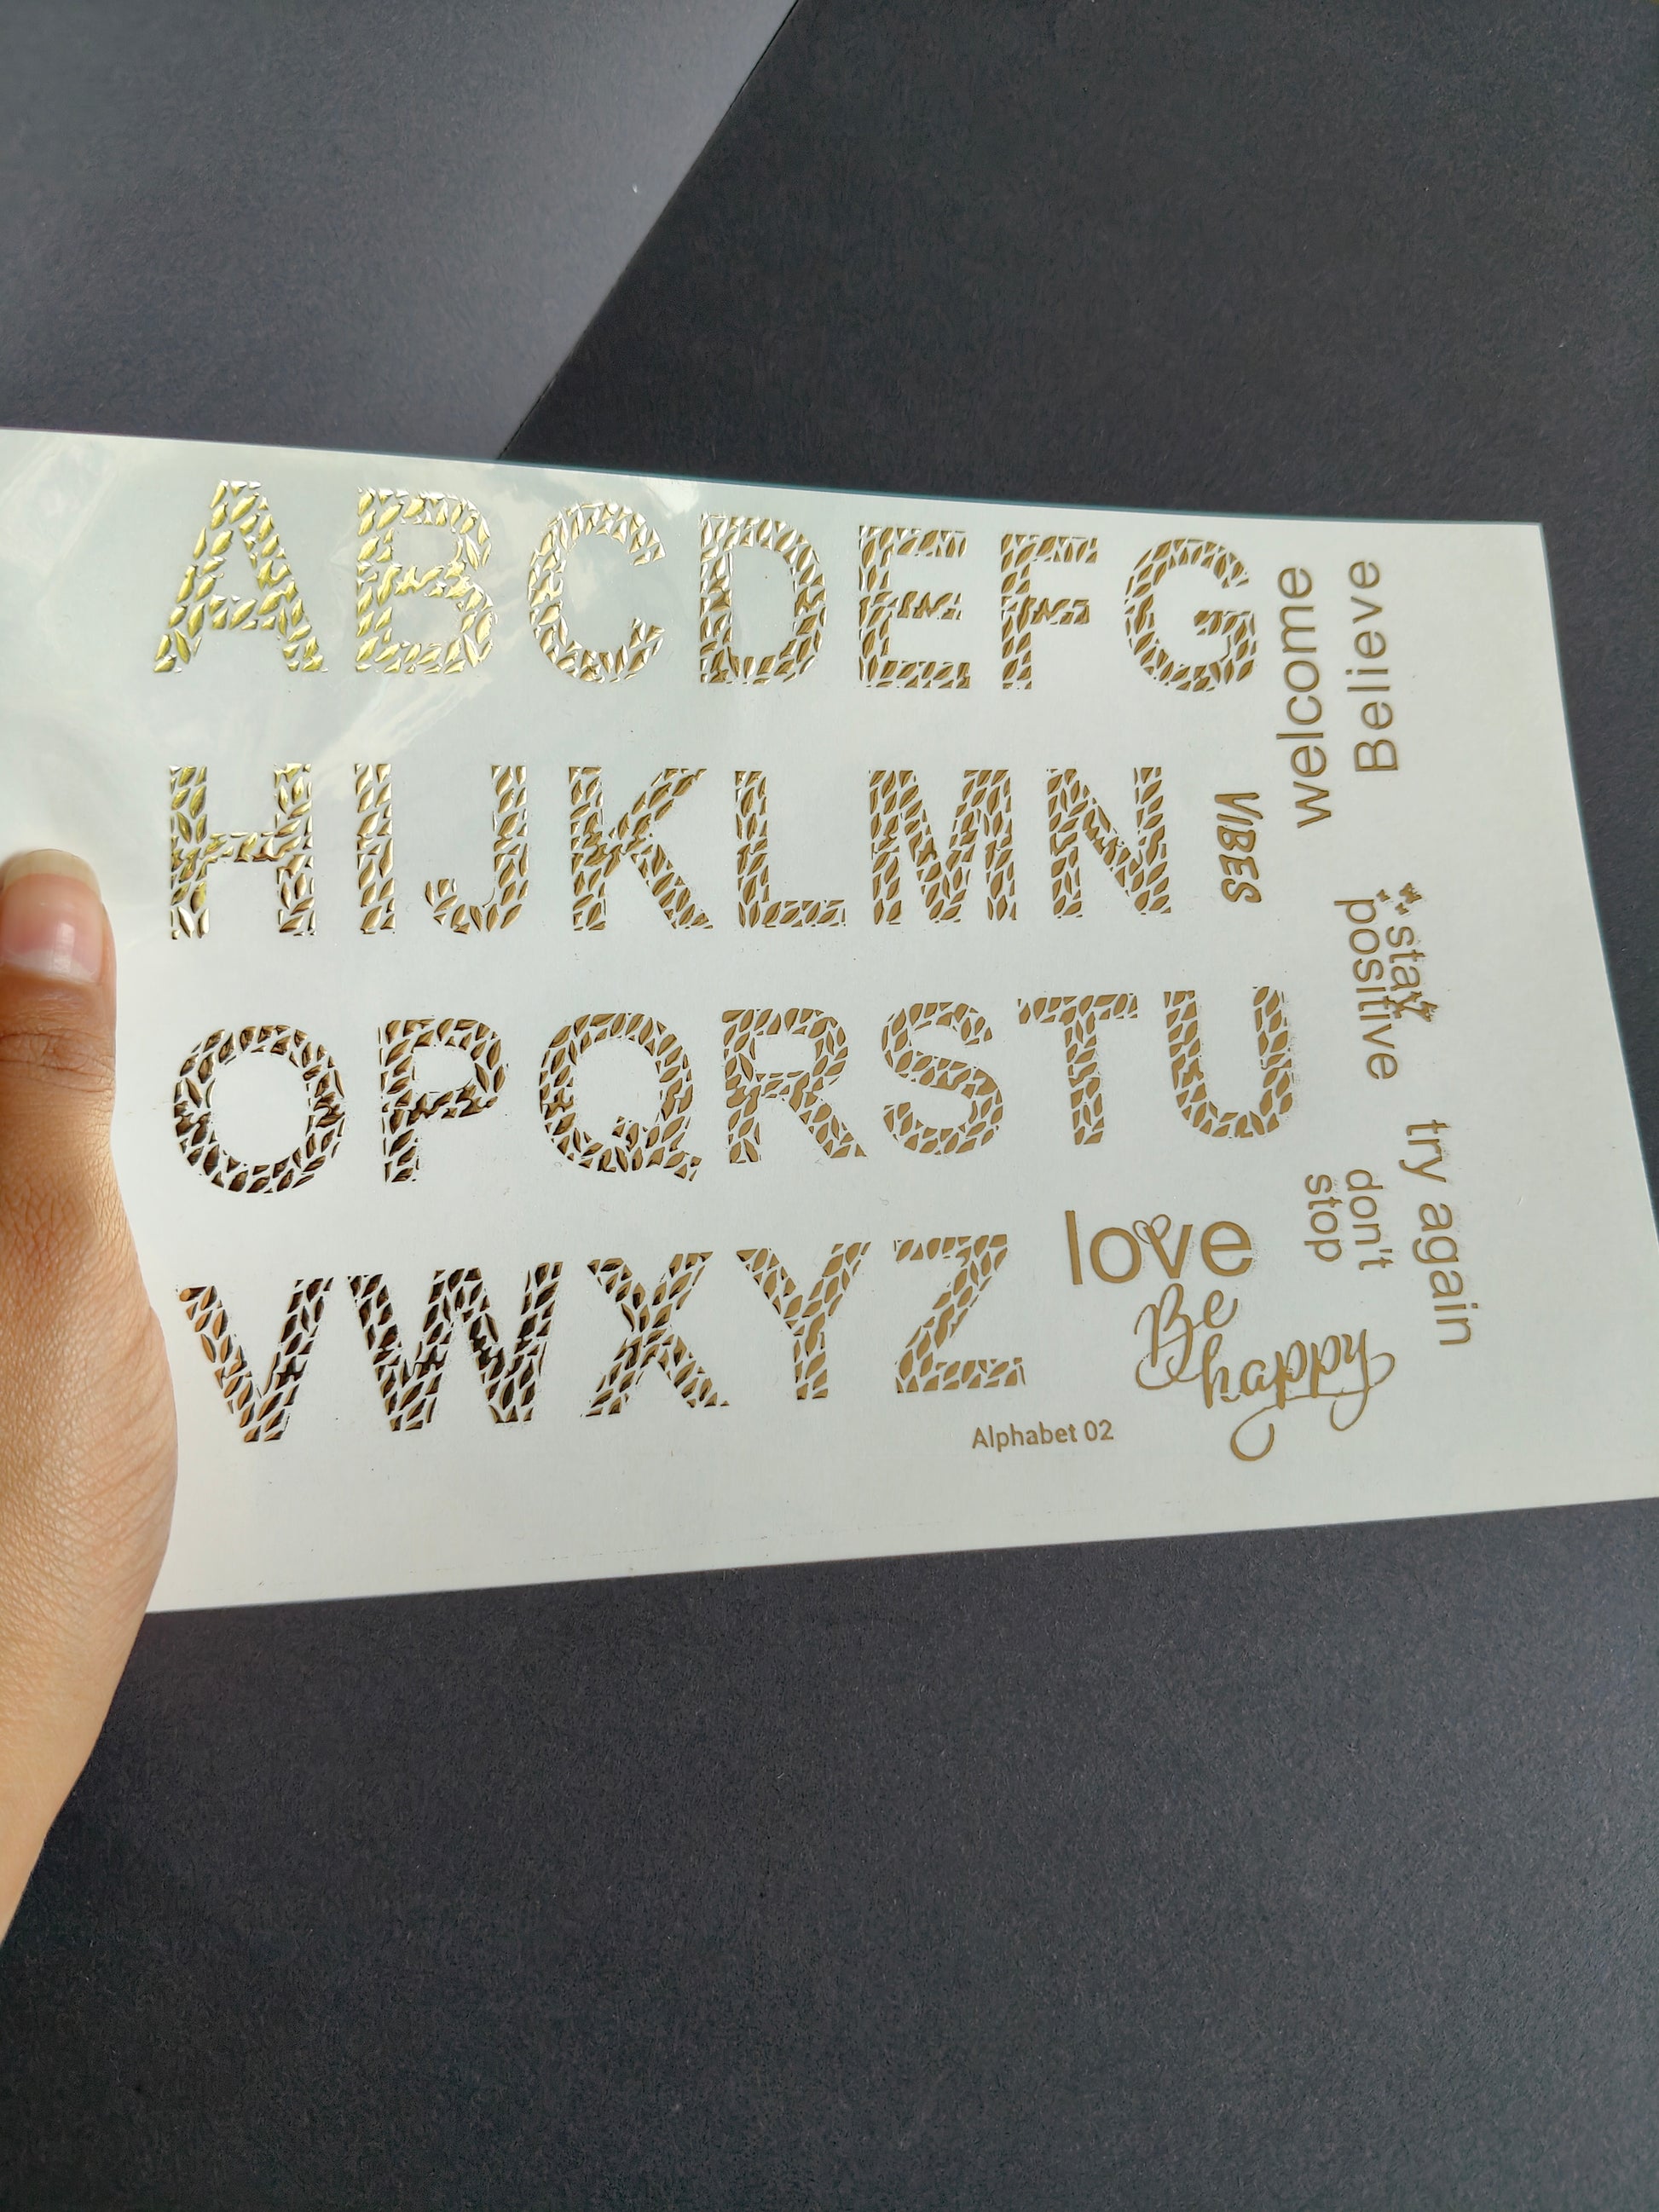 ABCDEFG
HIJKLMN
OPQRSTU
VWXYZ
welcome
Believe
VIBES
stay
positive
try again
don't
stop
love
Be
happy
Alphabet 02